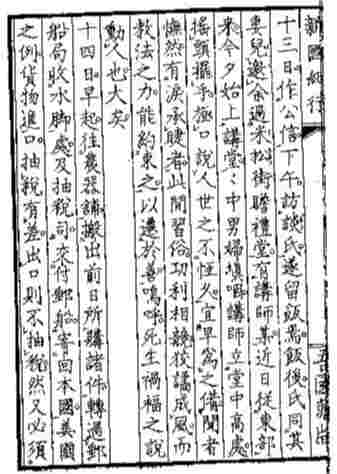 新國紀行
十三日作公信下午訪談氏遂留飯焉飯後氏同其
妻兒邀余過米松街瞻禮堂有講師某近日從東部
來今夕始上講堂〻中男婦填咽講師立堂中高處
搖頭攝手極口說人世之不恆久宜早為之備聞者
憮然有淚承睫者此間習俗功利相競狡譎成風而
教法之力能約束之以遷於善嗚呼死生禍福之說
動人也大矣
十四日早起往幾器舖搬出前日所購諸件轉過郵
船局收水腳處及抽稅司交付郵船寄回本國美國
之例貨物進口抽稅有差出口則不抽稅然又必須